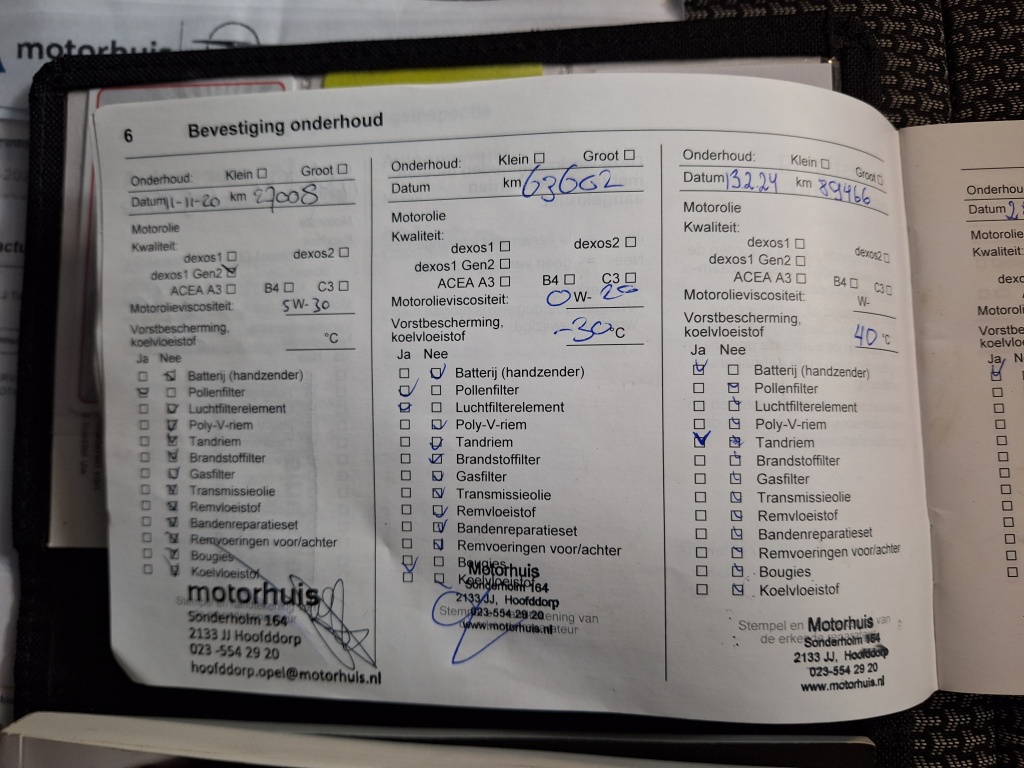 motorhuis
6 Bevestiging onderhoud
Onderhoud: Klein Groot
Datum 11-11-20 km 27008
Motorolie
Kwaliteit:
dexos1 dexos2
dexos1 Gen2
ACEA A3 B4 C3
Motorolieviscositeit: 5W-30
Vorstbescherming,
koelvloeistof °C
Ja Nee
Batterij (handzender)
Pollenfilter
Luchtfilterelement
Poly-V-riem
Tandriem
Brandstoffilter
Gasfilter
Transmissieolie
Remvloeistof
Bandenreparatieset
Remvoeringen voor/achter
Bougies
Koelvloeistof
motorhuis
Sonderholm 164
2133 JJ Hoofddorp
023 -554 29 20
hoofddorp.opel@motorhuis.nl
Onderhoud: Klein Groot
Datum km 63602
Motorolie
Kwaliteit:
dexos1 dexos2
dexos1 Gen2
ACEA A3 B4 C3
Motorolieviscositeit: 0W- 20
Vorstbescherming,
koelvloeistof -30°C
Ja Nee
Batterij (handzender)
Pollenfilter
Luchtfilterelement
Poly-V-riem
Tandriem
Brandstoffilter
Gasfilter
Transmissieolie
Remvloeistof
Bandenreparatieset
Remvoeringen voor/achter
Bougies
Koelvloeistof
Motorhuis
Sonderholm 164
2133 JJ, Hoofddorp
023-554 29 20
www.motorhuis.nl
Onderhoud: Klein Groot
Datum 13.2.24 km 89466
Motorolie
Kwaliteit:
dexos1 dexos2
dexos1 Gen2
ACEA A3 B4 C3
Motorolieviscositeit: W-
Vorstbescherming,
koelvloeistof 40 °C
Ja Nee
Batterij (handzender)
Pollenfilter
Luchtfilterelement
Poly-V-riem
Tandriem
Brandstoffilter
Gasfilter
Transmissieolie
Remvloeistof
Bandenreparatieset
Remvoeringen voor/achter
Bougies
Koelvloeistof
Stempel en van
de
Motorhuis
Sonderholm 164
2133 JJ, Hoofddorp
023-554 29 20
www.motorhuis.nl
Datum
Ja